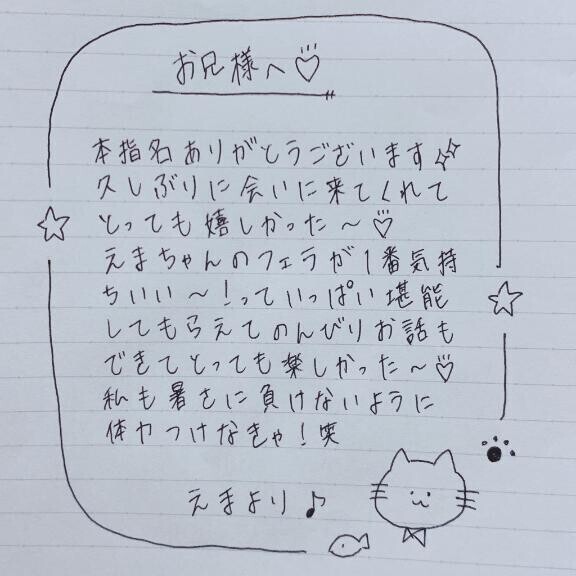 お兄様へ♡
本指名ありがとうございます✨
久しぶりに会いに来てくれて
とっても嬉しかった〜♡
えまちゃんのフェラが1番気持
ちいい〜！っていっぱい堪能
してもらえてのんびりお話も
できてとっても楽しかった〜♡
私も暑さに負けないように
体力つけなきゃ！笑
えまより♪